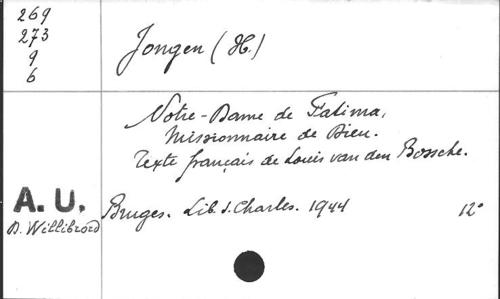 269
273
9
6
Jongen (H.)
Notre-Dame de Fatima,
Missionnaire de Dieu.
Texte français de Louis van den Bossche.
A. U.
D. Willibrord
Bruges. Lib. S. Charles. 1944 12°